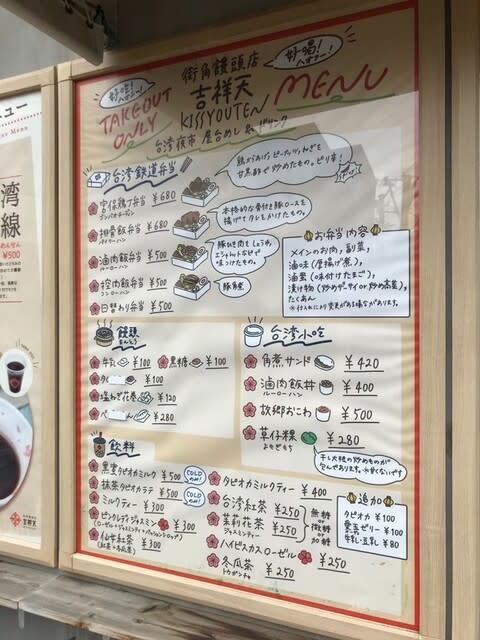 ニュー
湾
線
¥500
好吃!
ハオチー!
街角饅頭店
吉祥天
KISSYOUTEN
好喝!
ハオフー!
TAKEOUT
ONLY
MENU
台湾夜市 屋台めし&ドリンク
台湾鉄道弁当
鶏からあげとピーナッツ、ねぎを
甘黒酢で炒めたもの。ピリ辛!
宮保鶏丁弁当 ¥680
本格的な骨付き豚ロースを
揚げてタレをかけたもの。
排骨飯弁当 ¥680
パイクーハン
滷肉飯弁当 ¥500
ルーローハン
豚ひき肉としょうゆ、
エシャロットなどで
味つけたもの。
控肉飯弁当 ¥500
コンローハン
豚角煮
日替わり弁当 ¥500
お弁当内容
メインのお肉、副菜、
滷味(厚揚げ煮)、
滷蛋(味付けたまご)、
漬け物(炒めザーサイor炒め高菜)、
たくあん
※仕入れにより変更がある場合があります。
饅頭
まんとう
牛乳 ¥100
黒糖 ¥100
¥100
塩ねぎ花巻 ¥120
¥280
台湾小吃
角煮サンド ¥420
滷肉飯丼 ¥400
ルーローハン
故郷おこわ ¥500
草仔粿 ¥280
よもぎもち
干し大根の炒めものが
包んであります。※甘くないです
飲料
黒蜜タピオカミルク ¥500
COLD
のみ!
抹茶タピオカラテ ¥500
ミルクティー ¥300
COLD
のみ!
ピンクレディジャスミン ¥300
(ローゼル+ジャスミンティー+パッションシロップ)
仙女紅茶 ¥300
(紅茶+冬瓜茶)
タピオカミルクティー ¥400
台湾紅茶 ¥250
茉莉花茶 ¥250
ジャスミンティー
無糖
or
微糖
or
加糖
ハイビスカスローゼル ¥250
冬瓜茶 ¥250
トウガンチャ
追加
タピオカ ¥100
愛玉ゼリー ¥100
牛乳・豆乳 ¥80
吉祥天